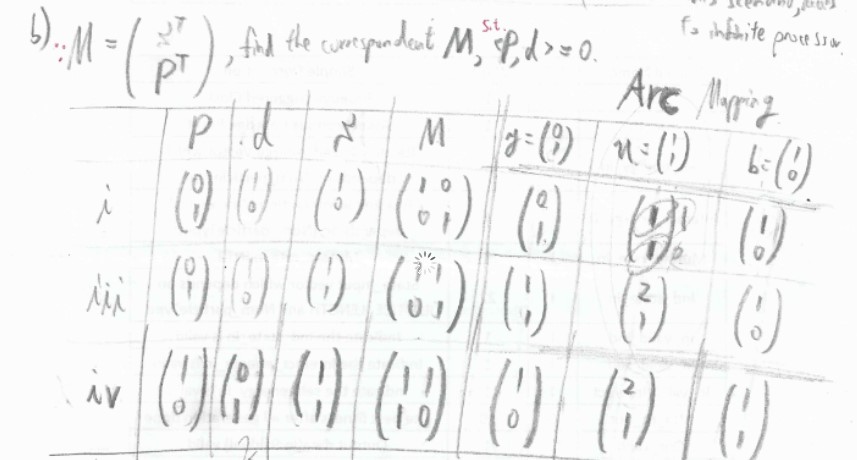 b) ∵ M = (s^T / P^T), find the correspondent M, s.t. <P, d> = 0.
Fo infinite processor.
Arc Mapping
P d s M y = (0 1) x = (1 1) b = (1 0)
i (0 1) (1 0) (1 0) (1 0 / 0 1) (0 1) (1 1) (1 0)
iii (0 1) (1 0) (1 1) (1 1 / 0 1) (1 1) (2 1) (1 0)
iv (1 0) (0 1) (1 1) (1 1 / 1 0) (1 0) (2 1) (1 1)